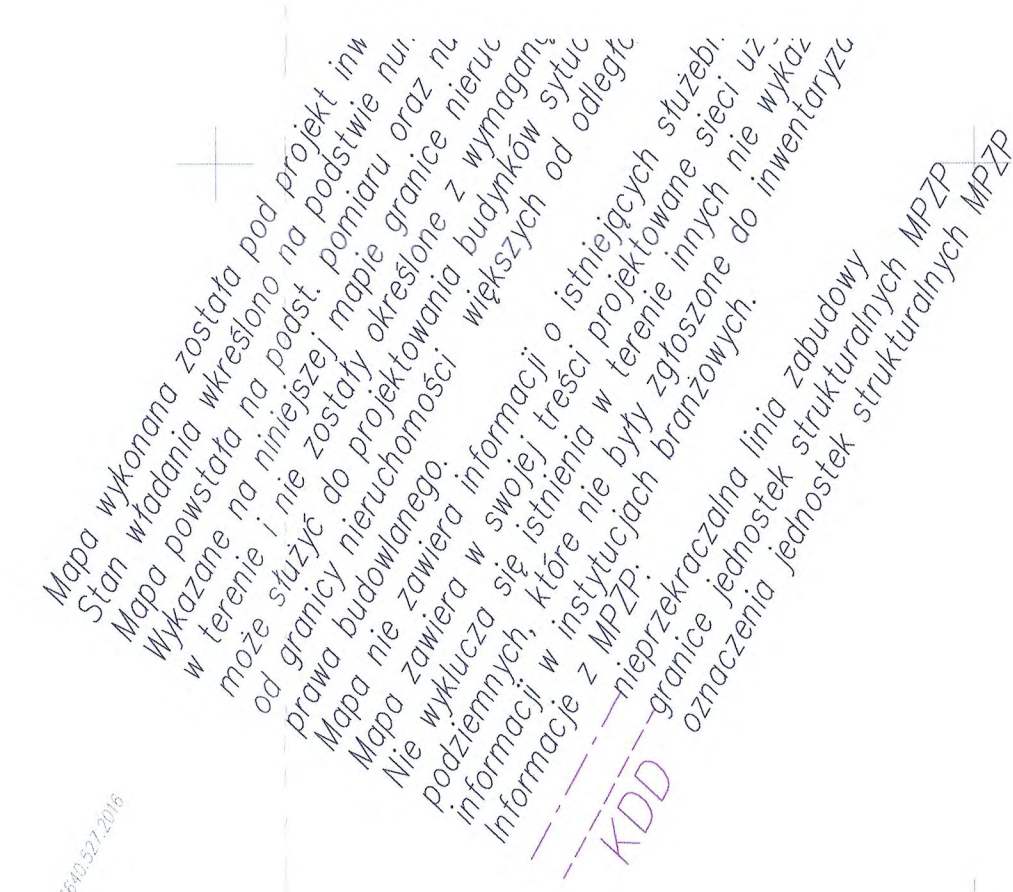 Mapa wykonana została pod projekt inw
Stan władania wkreślono na podstwie nur
Mapa powstała na podst. pomiaru oraz nu
Wykazane na niniejszej mapie granice nieruc
w terenie i nie zostały określone z wymaganą
może służyć do projektowania budynków sytuc
od granicy nieruchomości większych od odległo
prawa budowlanego.
Mapa nie zawiera informacji o istniejących służebn
Mapa zawiera w swojej treści projektowane sieci uz
Nie wyklucza się istnienia w terenie innych nie wykaz
podziemnych, które nie były zgłoszone do inwentaryza
informacji w instytucjach branżowych.
Informacje z MPZP:
nieprzekraczalna linia zabudowy
granice jednostek strukturalnych MPZP
KDD oznaczenia jednostek strukturalnych MPZP
6640.527.2016